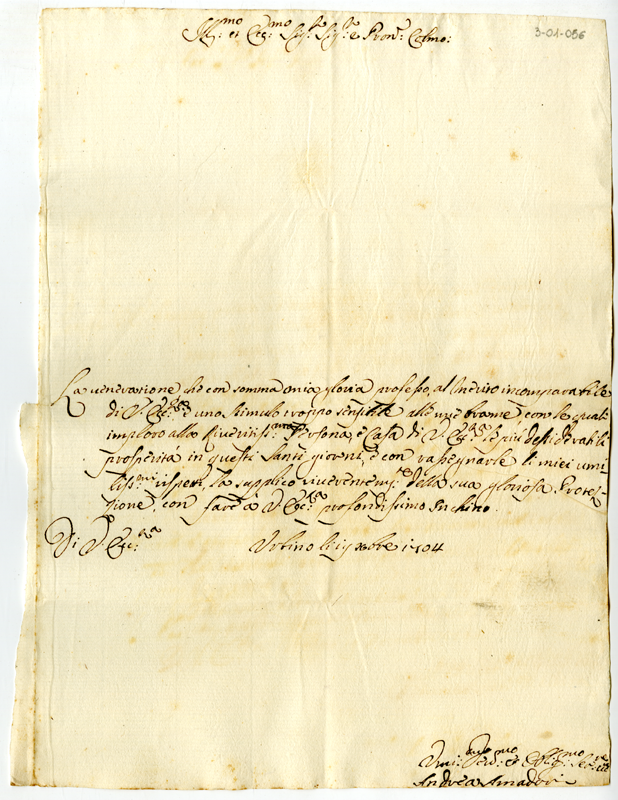 3-01-056
Ill:mo et Ecc:mo Sig:r Sig:r e Pron: Colmo:
La venerazione che con somma mia gloria professo, al Merito incomparabile
di V. Ecc:za è uno stimolo troppo sensibile alle mie brame con le quali
imploro alla Riveritiss:ma Persona, e Casa di V. Ecc:za le più desiderabili
prosperità in questi Santi giorni, e con rassegnarle li miei umi-
liss:mi rispetti, la supplico riverentem:te della sua gloriosa Protez-
zione, con fare à V. Ecc:za profondissimo Inchino.
Di V. Ecc:za Urbino li xmbre 1704
Umi: Dev:mo et Obblig:mo Se:re
Andrea Amadori